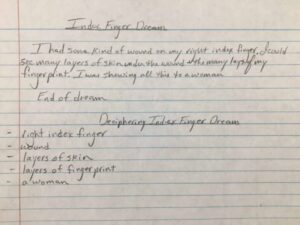 Index Finger Dream
I had some kind of wound on my right index finger. I could
see many layers of skin under the wound & the many layers of my
fingerprint. I was showing all this to a woman
End of dream
Deciphering Index Finger Dream
- right index finger
- wound
- layers of skin
- layers of fingerprint
- a woman